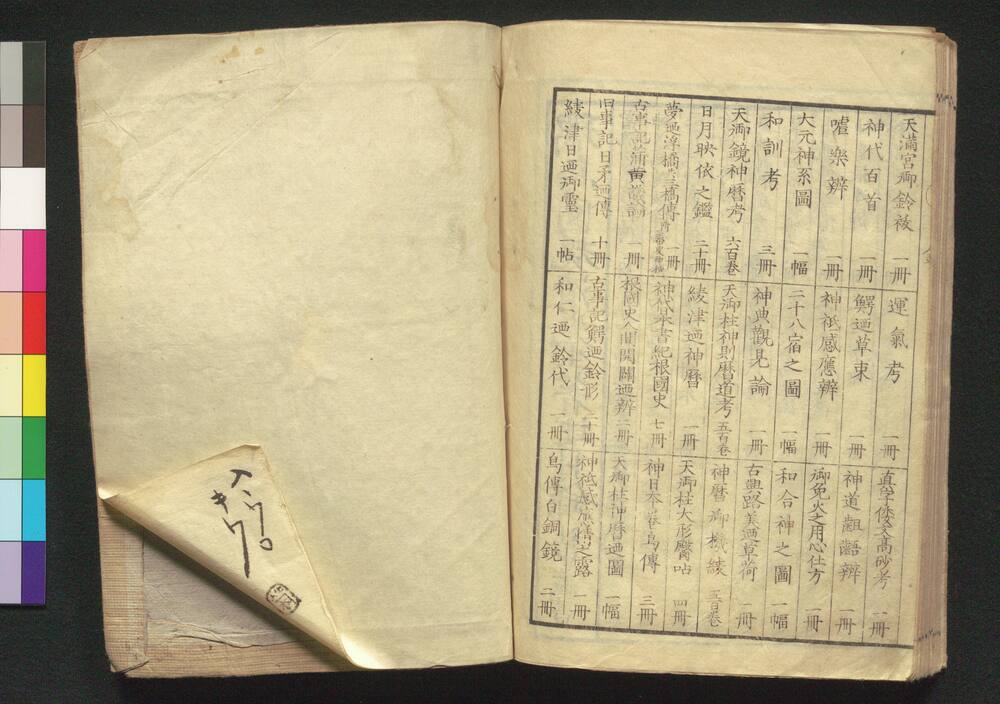 天満宮御鈴祓 一冊
運氣考 一冊
直字倭文高砂考 一冊
神代百首 一冊
鰐廼草束 一冊
神道齟齬辨 一冊
嘘樂辨 一冊
神祇感應辨 一冊
御免火之用心仕方 一冊
大元神系圖 一幅
二十八宿之圖 一幅
和合神之圖 一幅
和訓考 三冊
神典觀見論 一冊
古典路美廼草荷 一冊
天御鏡神暦考 六百巻
天御柱神則暦道考 五百巻
神暦御機綾 五百巻
日月映依之鑑 二十冊
綾津廼神暦 一冊
天御柱大形暦 四冊
夢廼浮橋 一冊
神代 書紀根國史 七冊
神日本 傳 三冊
古事記 論 一冊
根國史 開闢廼辨 二冊
天御柱神暦廼圖 一幅
旧事記日矛廼傳 十冊
古事記鰐廼鈴形 二十冊
神祇感應精之露 一冊
綾津日廼御璽 一帖
和仁廼鈴代 一冊
烏傳白銅鏡 二冊